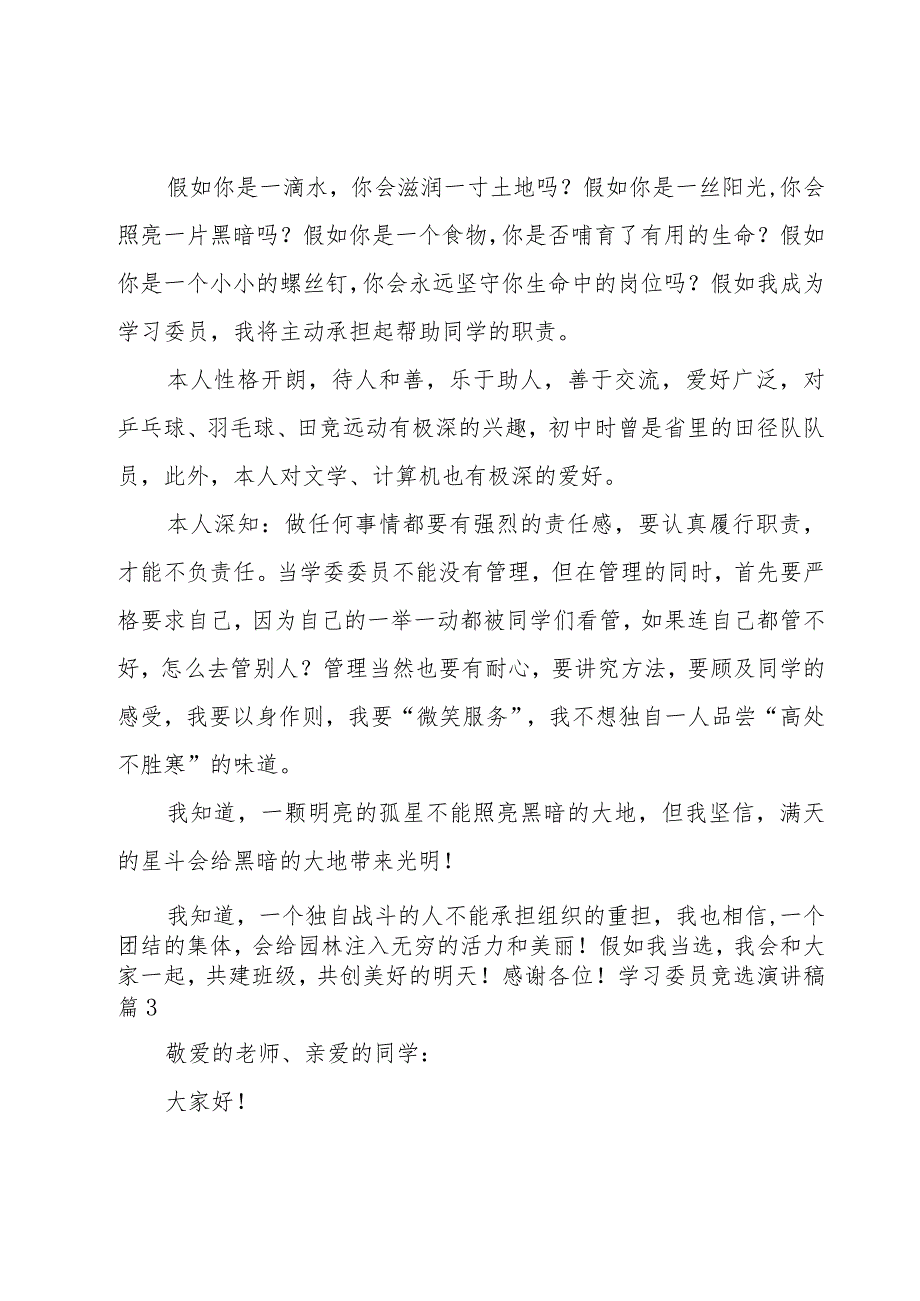 假如你是一滴水，你会滋润一寸土地吗？假如你是一丝阳光,你会
照亮一片黑暗吗？假如你是一个食物,你是否哺育了有用的生命？假如
你是一个小小的螺丝钉,你会永远坚守你生命中的岗位吗？假如我成为
学习委员，我将主动承担起帮助同学的职责。
本人性格开朗，待人和善，乐于助人，善于交流，爱好广泛，对
乒乓球、羽毛球、田竞远动有极深的兴趣，初中时曾是省里的田径队队
员，此外，本人对文学、计算机也有极深的爱好。
本人深知：做任何事情都要有强烈的责任感，要认真履行职责，
才能不负责任。当学委委员不能没有管理，但在管理的同时，首先要严
格要求自己，因为自己的一举一动都被同学们看管，如果连自己都管不
好，怎么去管别人？管理当然也要有耐心，要讲究方法，要顾及同学的
感受，我要以身作则，我要“微笑服务”，我不想独自一人品尝“高处
不胜寒”的味道。
我知道，一颗明亮的孤星不能照亮黑暗的大地，但我坚信，满天
的星斗会给黑暗的大地带来光明！
我知道，一个独自战斗的人不能承担组织的重担，我也相信,一个
团结的集体，会给园林注入无穷的活力和美丽！假如我当选，我会和大
家一起，共建班级，共创美好的明天！感谢各位！学习委员竞选演讲稿
篇3
敬爱的老师、亲爱的同学：
大家好！